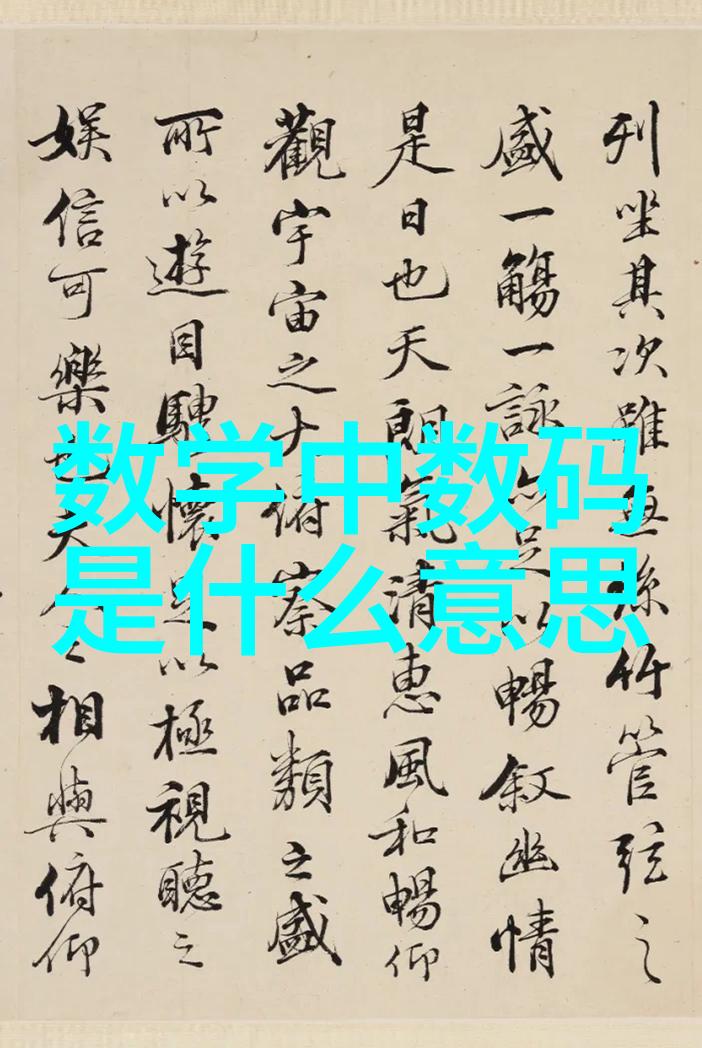 列坐其次雖無絲竹管弦之
盛一觴一詠亦足以暢敘幽情
是日也天朗氣清惠風和暢仰
觀宇宙之大俯察品類之盛
所以遊目騁懷足以極視聽之
娛信可樂也夫人之相與俯仰
数学中数码
是什么意思